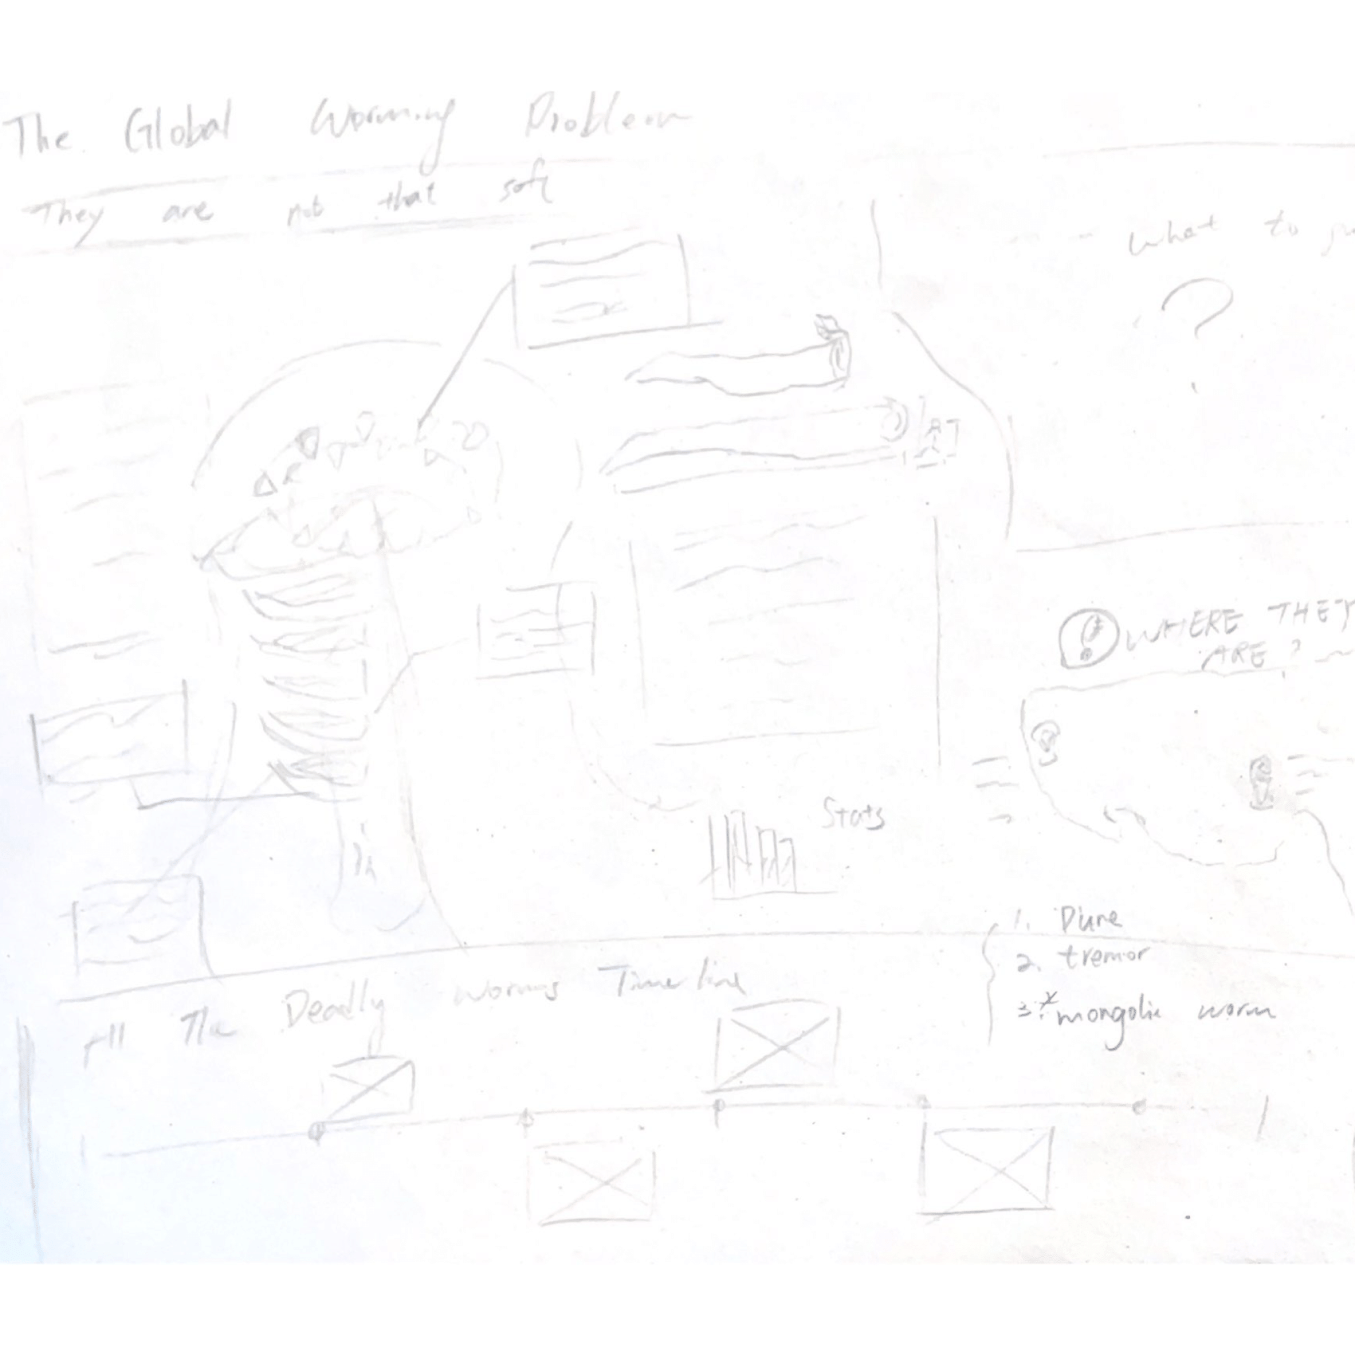 The Global Worming Problem
They are not that soft
what to
?
WHERE THEY
ARE?
Stats
1. Dune
2. tremor
3.* mongolic worm
All The Deadly Worms Timeline